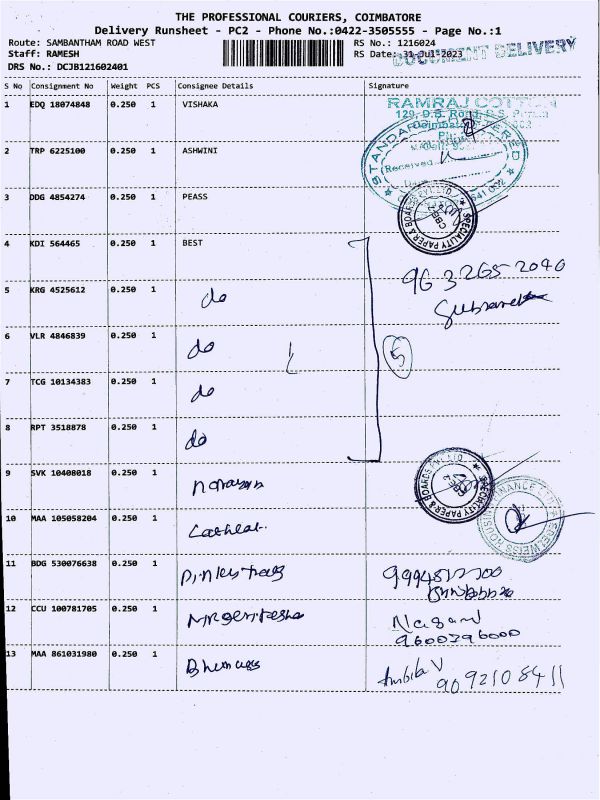 THE PROFESSIONAL COURIERS, COIMBATORE
Delivery Runsheet - PC2 - Phone No.:0422-3505555 - Page No.:1
Route: SAMBANTHAM ROAD WEST RS No.: 1216024
Staff: RAMESH RS Date: 31-Jul-2023 DOCUMENT DELIVERY
DRS No.: DCJB121602401
S No Consignment No Weight PCS Consignee Details Signature
1 EDQ 18074848 0.250 1 VISHAKA RAMRAJ COTTON
129, D.B. Road, R.S.
2 TRP 6225100 0.250 1 ASHWINI STANDARD CHARTERED
Received
3 DDG 4854274 0.250 1 PEASS SPECIALITY PAPER & BOARDS PVT. LTD. CBE
4 KDI 564465 0.250 1 BEST
96 3265 2040
5 KRG 4525612 0.250 1 do
6 VLR 4846839 0.250 1 do 5
7 TCG 10134383 0.250 1 do
8 RPT 3518878 0.250 1 do
9 SVK 10408018 0.250 1 SPECIALITY PAPER & BOARDS PVT. LTD.
10 MAA 105058204 0.250 1 EDELWEISS HOUSING FINANCE LTD
11 BDG 530076638 0.250 1
12 CCU 100781705 0.250 1
9600396000
13 MAA 861031980 0.250 1 Ambika V
9092108411